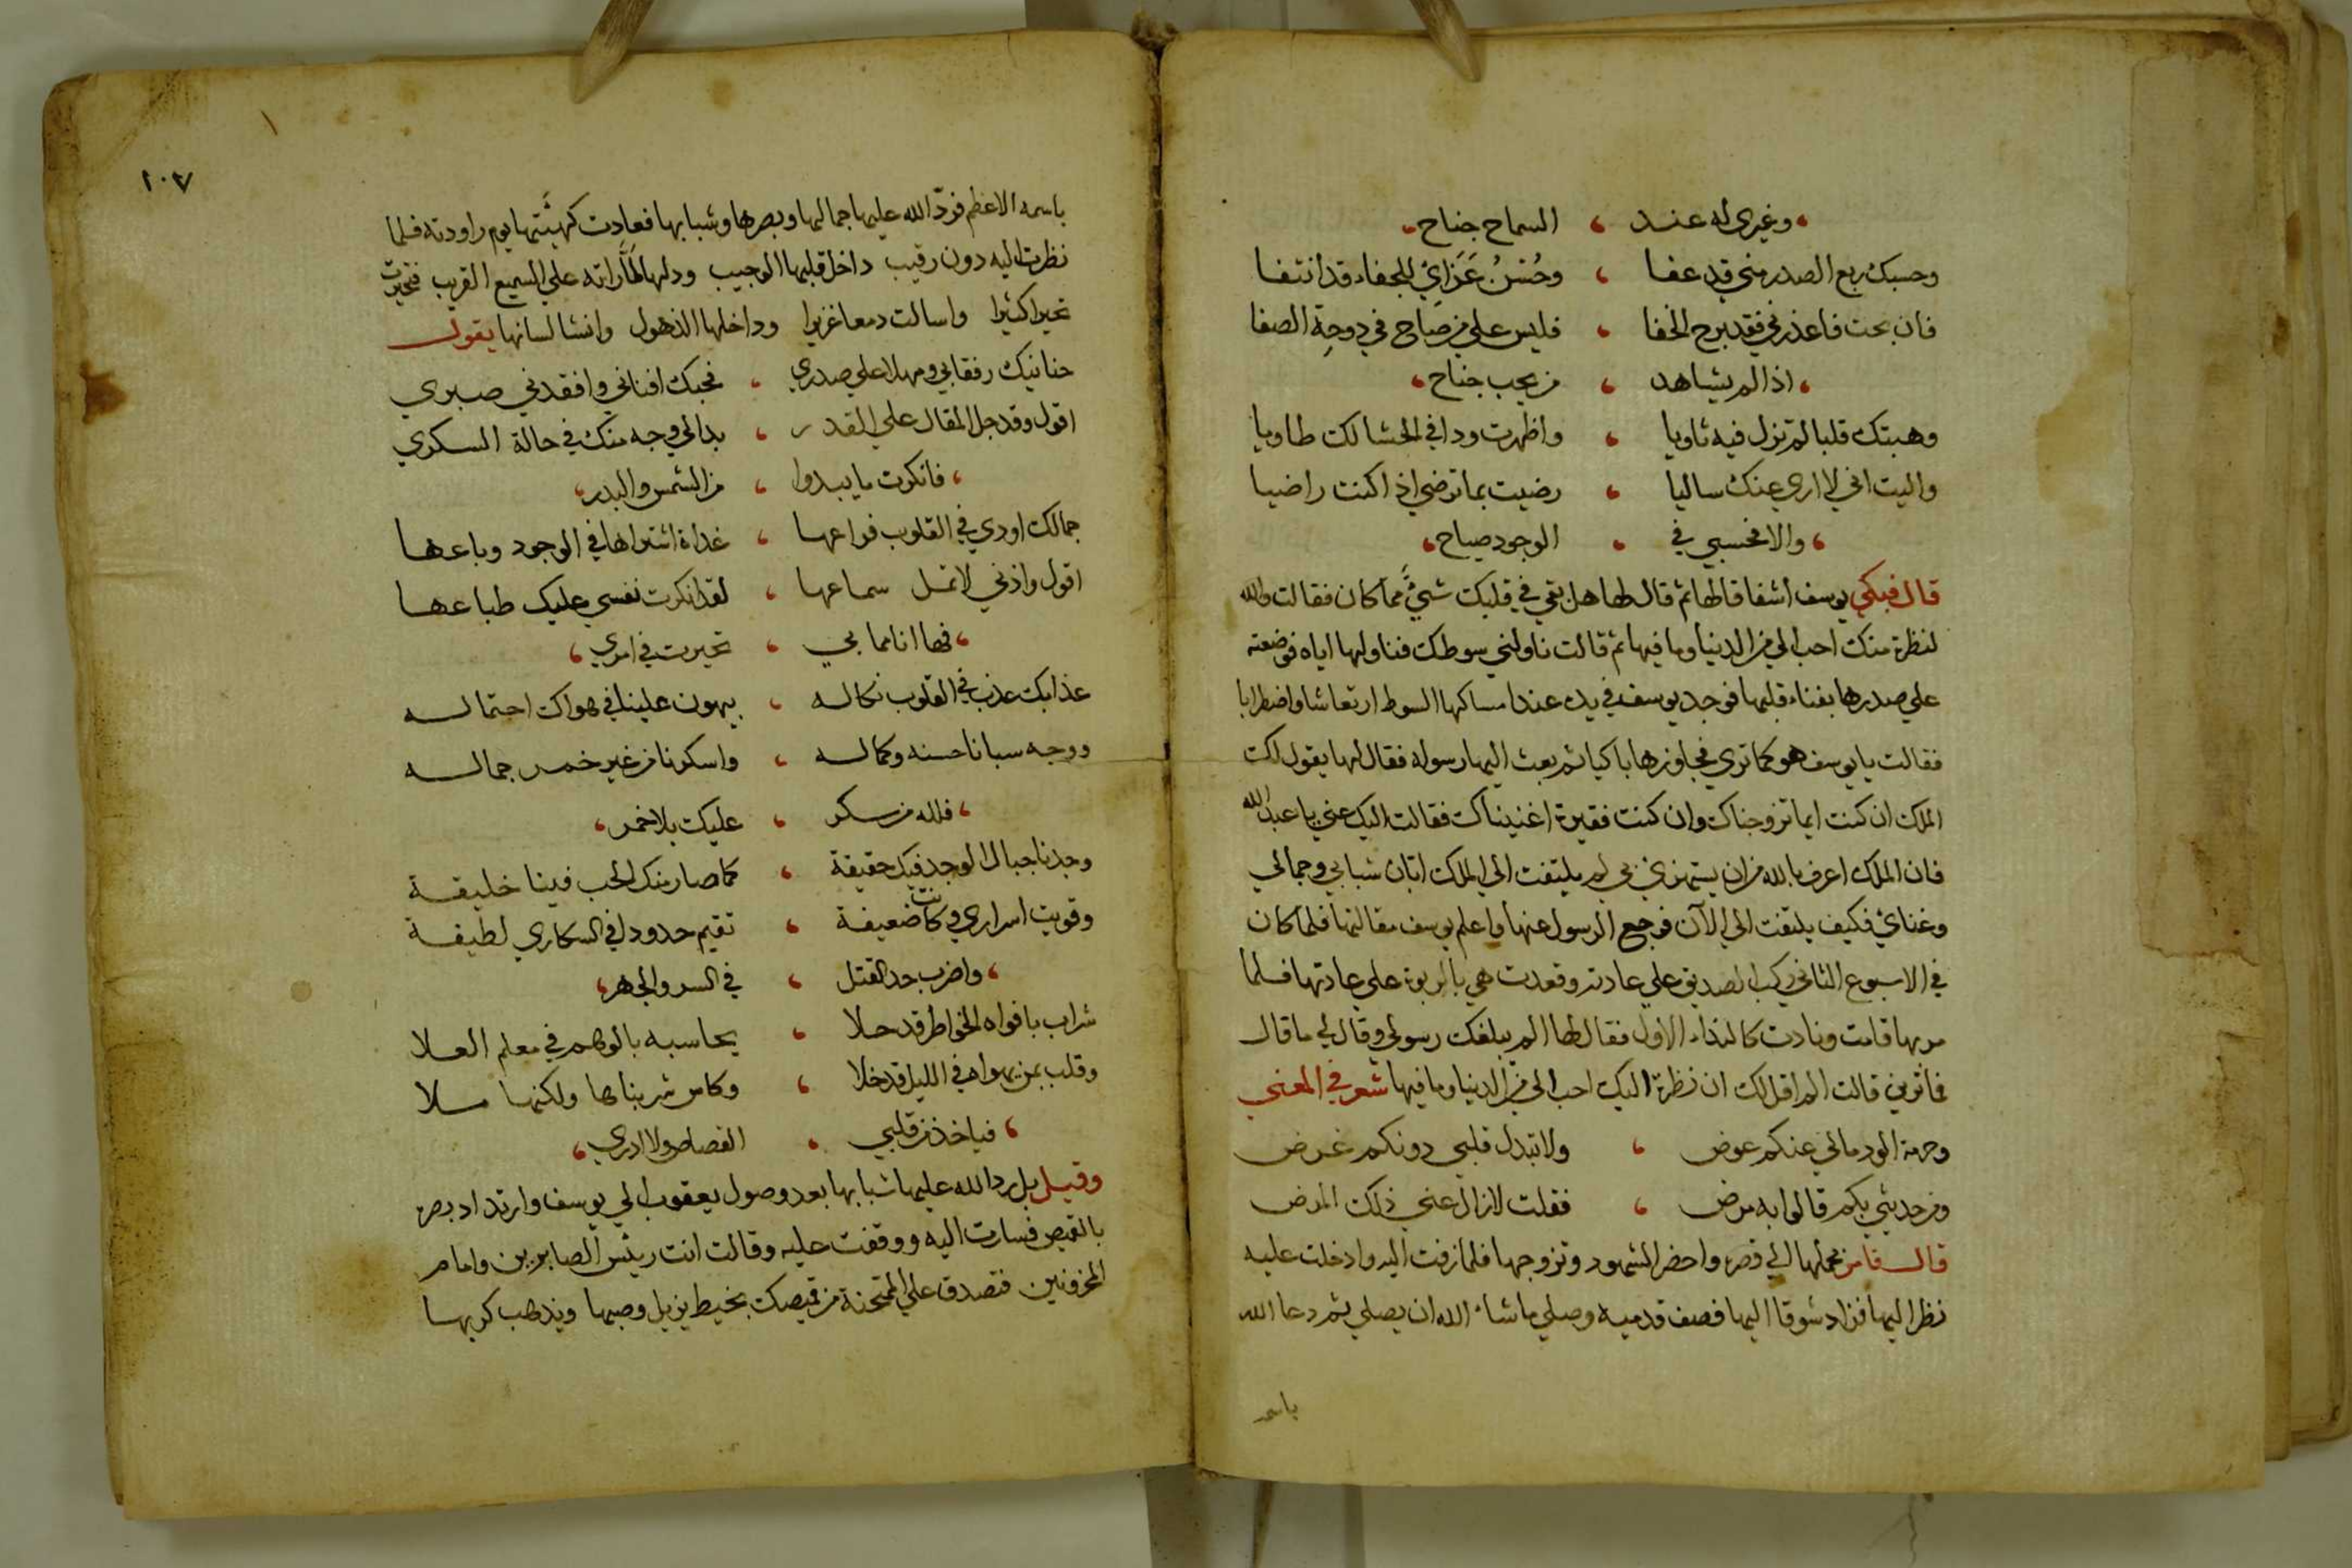 وغيري له عند ، السماح جناح
وحسبك ربع الصدر مني قد عفا ، وحُسْنُ عَزَايْ للجفاء قد انتفا
فان بحت فاعذرني فقد برح الخفا ، فليس علي من صاح في دوحة الصفا
اذا لم يشاهد ، من يحب جناح
وهبتك قلبا لم تزل فيه ثاويا ، واظهرت ودا في الحشا لك طاويا
واليت اني لا اري عنك ساليا ، رضيت بما ترضي اذا كنت راضيا
والا فحسبي في ، الوجود صياح
قال فبكي يوسف اشفاقا لها ثم قال لها هل بقي في قلبك شيءٌ مما كان فقالت والله
لنظرة منك احب الي من الدنيا وما فيها ثم قالت ناولني سوطك فناولها اياه فوضعته
علي صدرها بفناء قلبها فوجد يوسف في يده عند امساكها السوط ارتعاشا واضطرابا
فقالت يا يوسف هو كما تري فجاوزها باكيا ثم بعث اليها رسوله فقال لها يقول لك
الملك ان كنت ايما تزوجناك وان كنت فقيرة اغنيناك فقالت اليك عني يا عبد الله
فان الملك اعرف بالله من ان يستهزئ بي لم يلتفت الي الملك ابان شبابي وجمالي
وغنائي فكيف يلتفت الي الآن فرجع الرسول عنها واعلم يوسف مقالتها فلما كان
في الاسبوع الثاني ركب الصديق علي عادته وقعدت هي بالربوة علي عادتها فلما
مر بها قامت ونادت كالنداء الاول فقال لها الم يبلغك رسولي وقال لي ما قال
فما تريد قالت الم اقل لك ان نظرة اليك احب الي من الدنيا وما فيها شعر في المعني
وحرمة الود مالي عنكم عوض ، ولا تبدل قلبي دونكم غرض
ومن حديثي بكم قالوا به مرض ، فقلت لا زال عني ذلك المرض
قال فامر بحملها الي قصره واحضر الشهود وتزوجها فلما زفت اليه وادخلت عليه
نظر اليها فزاد شوقا اليها فصف قدميه وصلي ما شاء الله ان يصلي ثم دعا الله
باسمه
١٠٧
باسمه الاعظم فردّ الله عليها جمالها وبصرها وشبابها فعادت كهيئتها يوم راودته فلما
نظرت اليه دون رقيب داخل قلبها الوجيب ودلها لما راته علي السميع القريب فتحيرت
تحيرا كثيرا واسالت دمعا غزيرا وداخلها الذهول وانشا لسانها يقول
حنانيك رفقا بي ومهلا علي صدري ، فحبك افناني وافقدني صبري
اقول وقد جل المقال علي القدر ، بدا لي وجه منك في حالة السكري
فانكرت ما يبدوا ، من الشمس والبدر
جمالك اودي في القلوب فراعها ، غداة اشتراها في الوجود وباعها
اقول واذني لا تمل سماعها ، لقد انكرت نفسي عليك طباعها
فها انا مما بي ، تحيرت في امري
عذابك عذب في القلوب نكاله ، يهون علينا في هواك احتماله
ووجه سبانا حسنه وكماله ، واسكرنا من غير خمر جماله
فلله من سكر ، عليك بلا خمر
وجدنا جبال الوجد فيك حقيقة ، كما صار منك الحب فينا خليقة
وقويت اسراري وكانت ضعيفة ، تقيم حدودا في السكاري لطيفة
واضرب حد القتل ، في السر والجهر
شراب بافواه الخواطر قد حلا ، يحاسبه بالوهم في معلم العلا
وقلب بمن يهواه في الليل قد خلا ، وكاس شربناها ولكنها ملا
فياخذ من قلبي ، القصاص ولا ادري
وقيل بل رد الله عليها شبابها بعد وصول يعقوب الي يوسف وارتداد بصره
بالقميص فسارت اليه ووقفت عليه وقالت انت رئيس الصابرين وامام
المحزونين فتصدق علي الممتحنة من قميصك بخيط يزيل وصبها ويذهب كربها